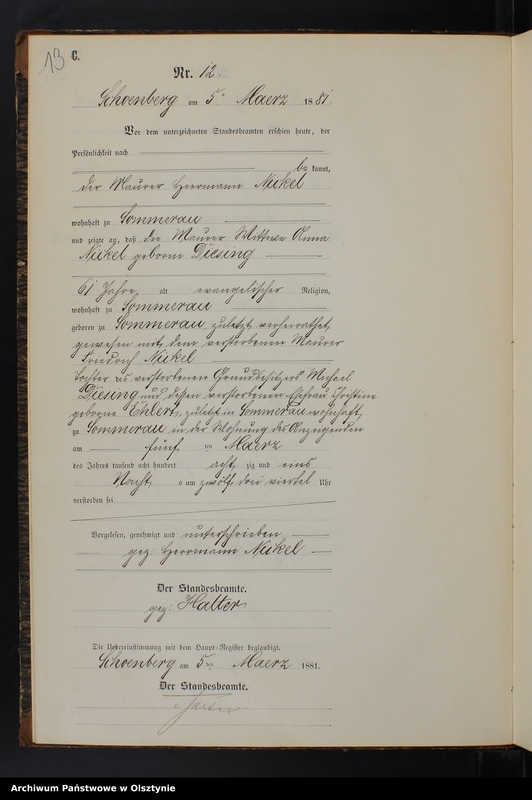 13
C.
Nr. 12.
Schoenberg am 5ten Maerz 1881.
Vor dem unterzeichneten Standesbeamten erschien heute, der
Persönlichkeit nach
be kannt,
der Maurer Herrmann Nickel
wohnhaft zu Sommerau
und zeigte an, daß die Maurer Wittwe Anna
Nickel geborne Diesing
61 Jahre alt evangelischer Religion,
wohnhaft zu Sommerau
geboren zu Sommerau, zuletzt verheirathet
gewesen mit dem verstorbenen Maurer
Friedrich Nickel
Tochter des verstorbenen Grundbesitzers Michael
Diesing und dessen verstorbenen Ehefrau Christine
geborne Ehlert, zuletzt in Sommerau wohnhaft,
zu Sommerau in der Wohnung des Anzeigenden
am fünf ten Maerz
des Jahres tausend acht hundert acht zig und eins
Nachts um zwölf drei viertel Uhr
verstorben sei
Vorgelesen, genehmigt und unterschrieben
gez: Herrmann Nickel
Der Standesbeamte.
gez: Halter
Die Uebereinstimmung mit dem Haupt-Register beglaubigt.
Schoenberg am 5ten Maerz 1881.
Der Standesbeamte.
Archiwum Państwowe w Olsztynie